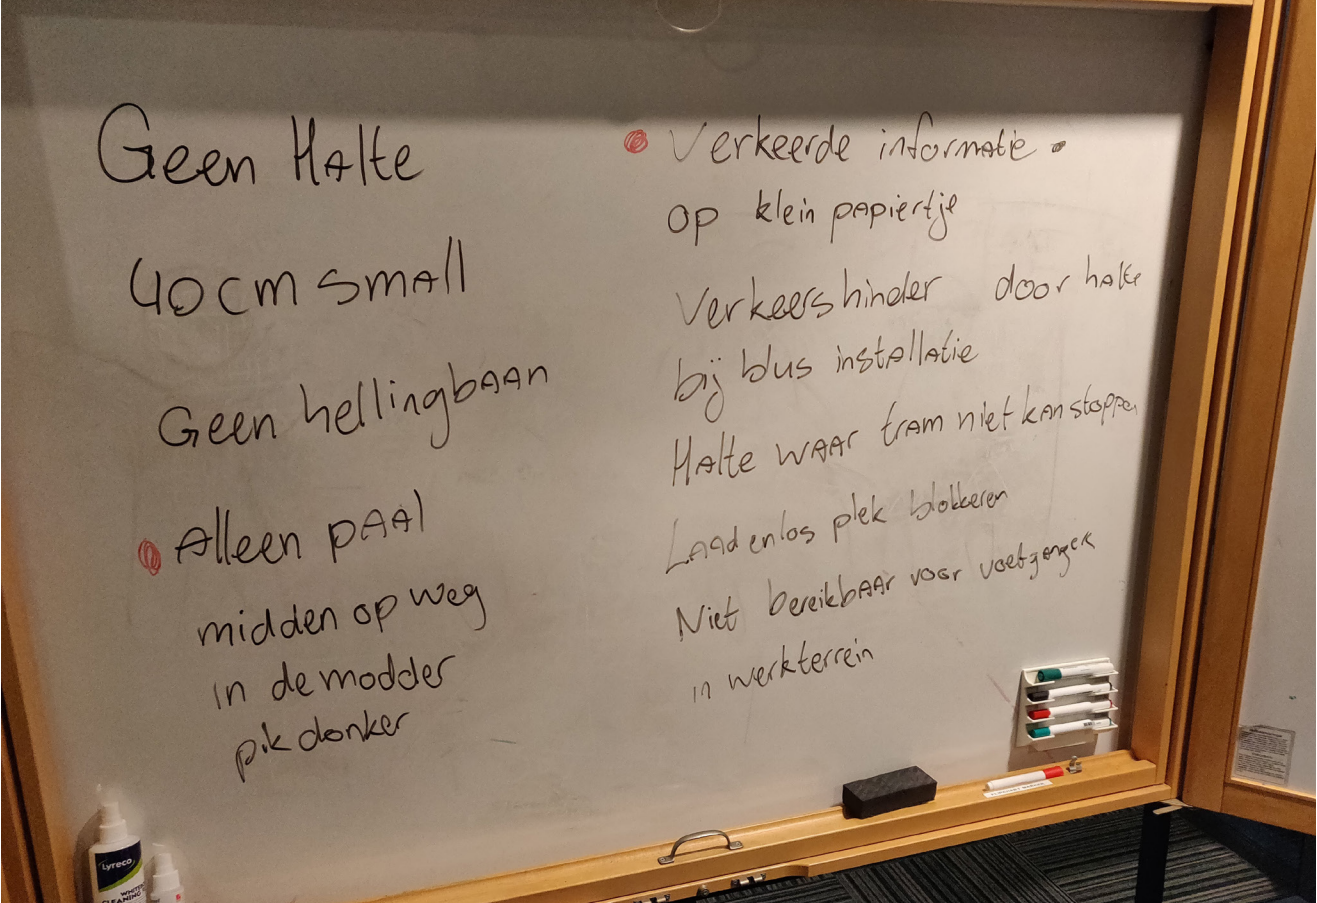 Geen Halte
40cm small
Geen hellingbaan
Alleen paal
midden op weg
in de modder
pikdonker
Verkeerde informatie
op klein papiertje
Verkeershinder door halte
bij blus installatie
Halte waar tram niet kan stoppen
Laad en los plek blokkeren
Niet bereikbaar voor voetgangers
in werkterrein
Lyreco
WHITE
CLEANING